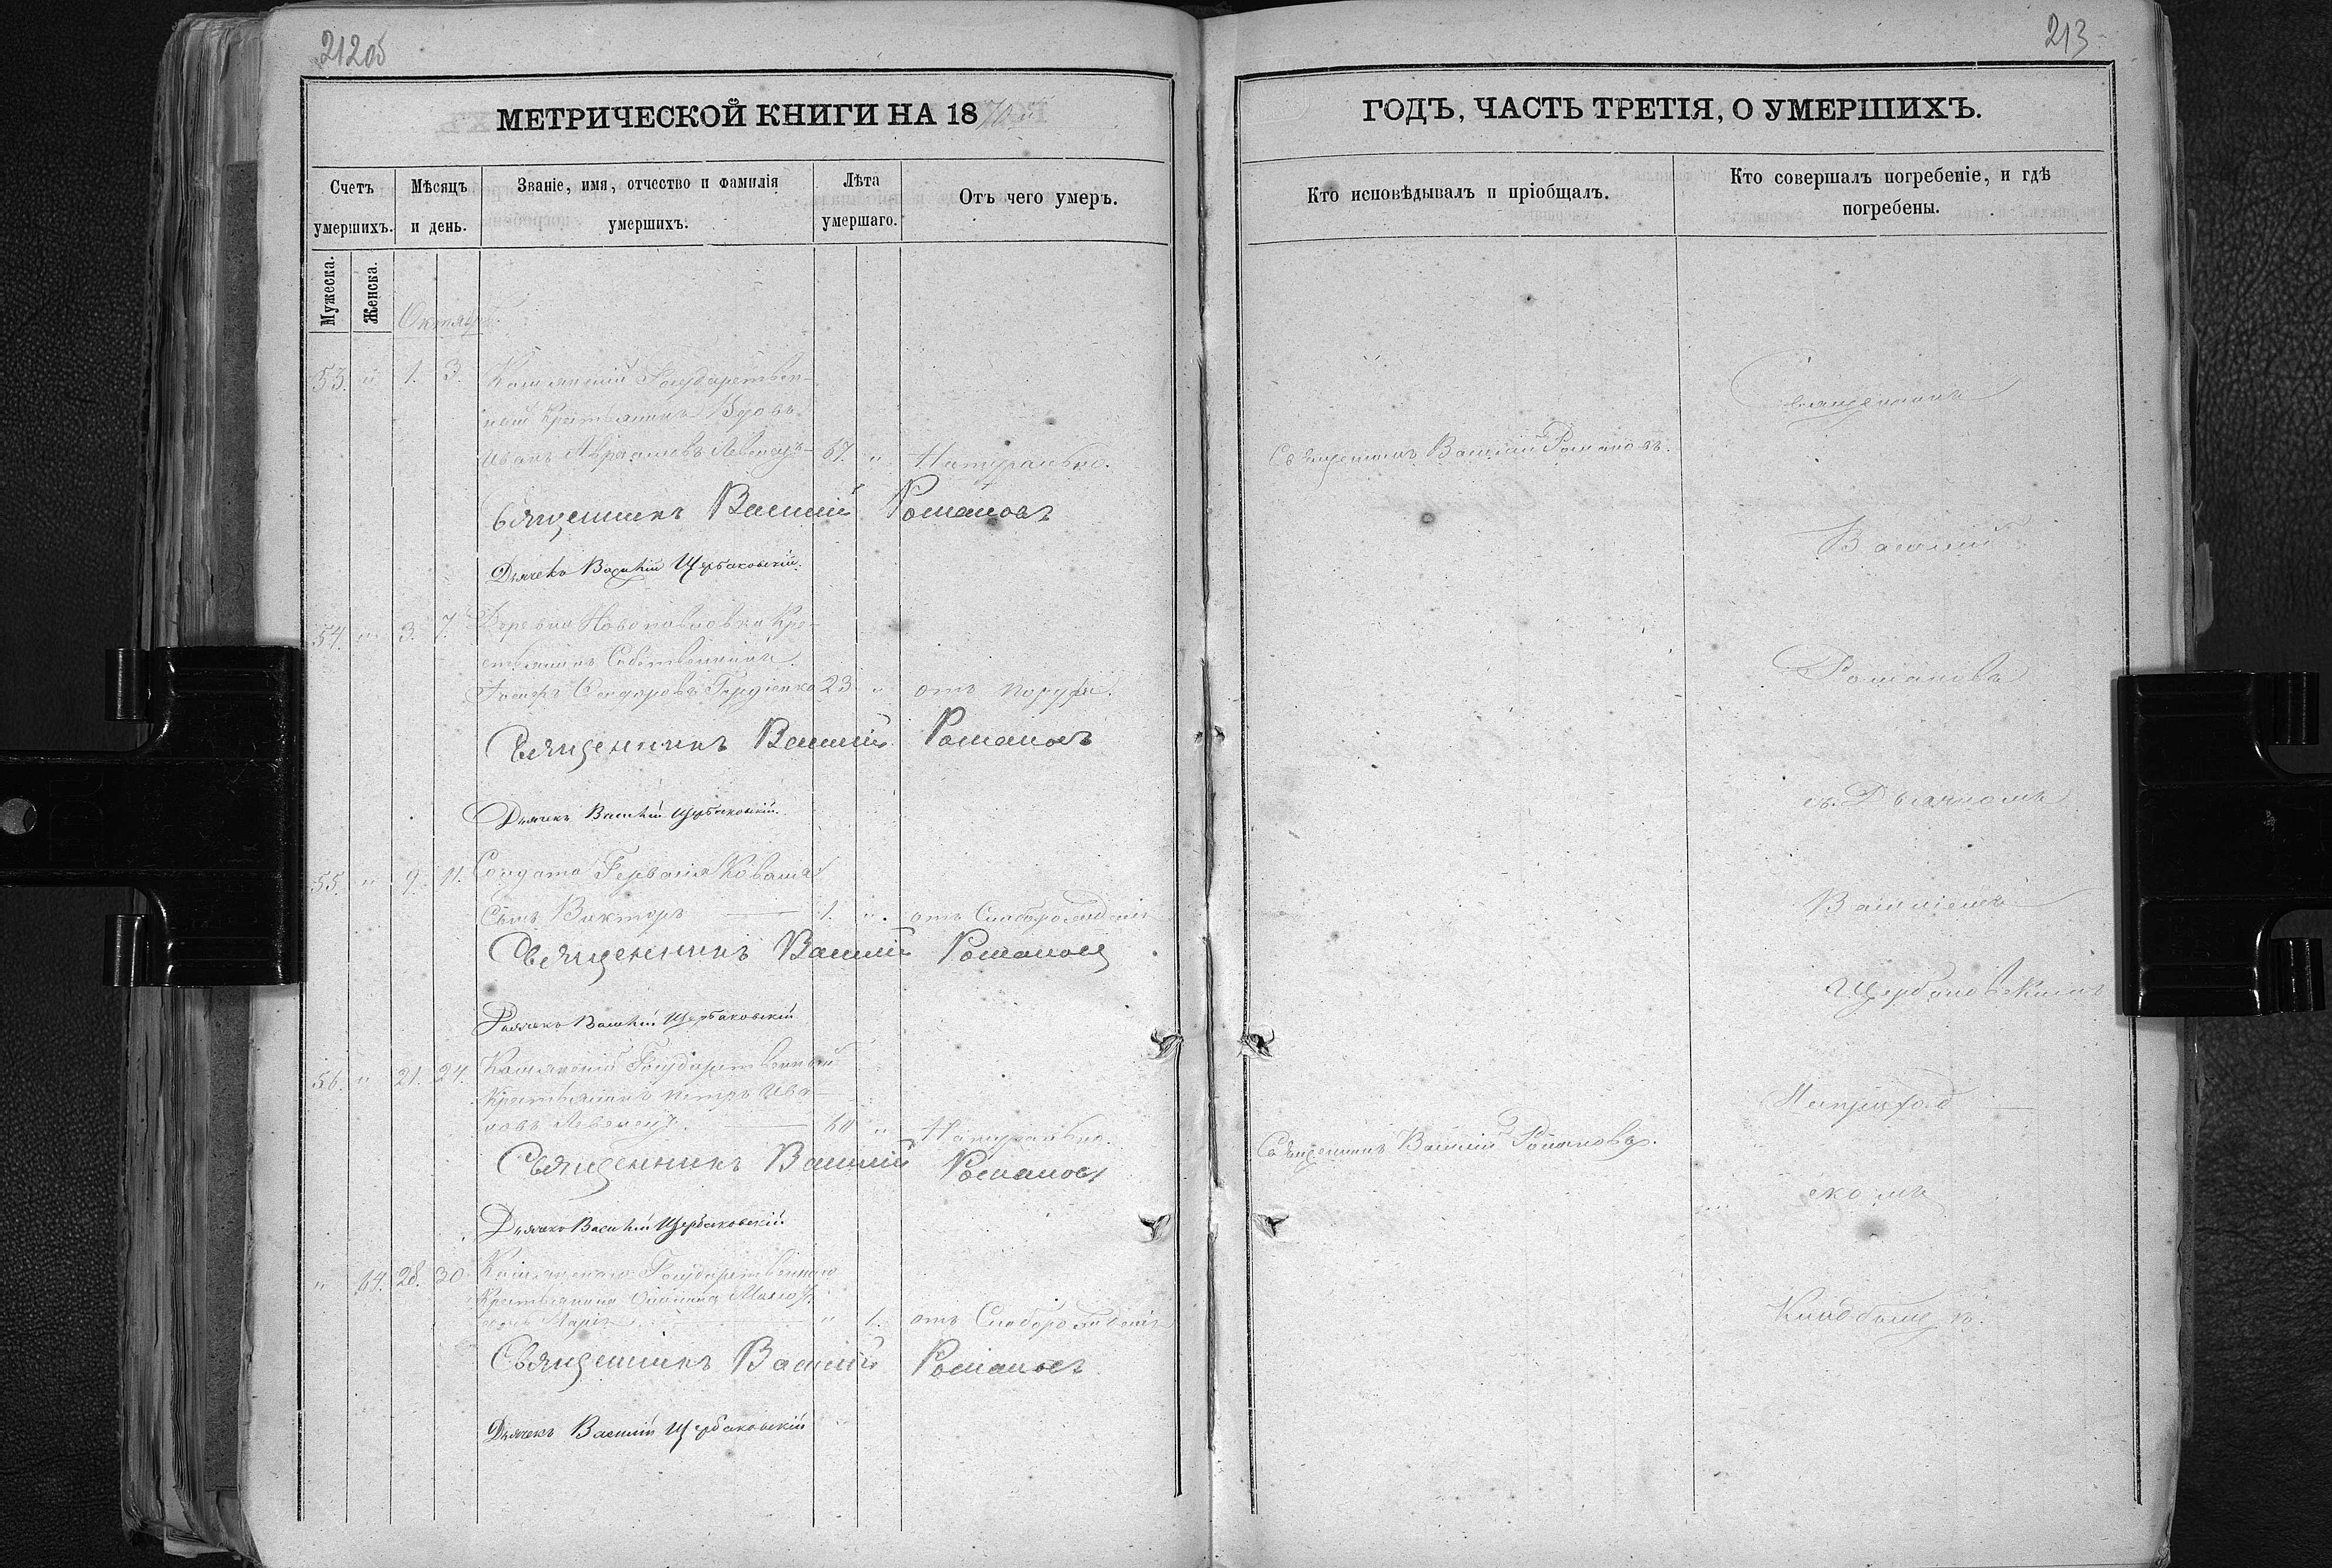 212об
МЕТРИЧЕСКОЙ КНИГИ НА 1870
Счетъ умершихъ.
Мѣсяцъ и день.
Званіе, имя, отчество и фамилія умершихъ.
Лѣта умершаго.
Отъ чего умеръ.
Мужеска.
Женска.
Октября
53. " 1. 3. Государствен-
ный Крестьянинъ Вдовъ
Иванъ Авраамовъ Левенецъ 67. " Натурально.
Священникъ Василій Романовъ
Дьячекъ Василій Щербаковскій.
54. " 3. 7. Деревни Новопавловки Кре-
стьянинъ Собственникъ
Сидоровъ 23 " отъ
Священникъ Василій Романовъ
Дьячекъ Василій Щербаковскій.
55. " 9. 11. Солдата Герваsiя Коваля
Сынъ Викторъ 1. " отъ Слаборожденія
Священникъ Василій Романовъ
Дьячекъ Василій Щербаковскій
56. " 21. 24. Государственный
Крестьянинъ Петръ Ива-
новъ Левенецъ. 60 " Натурально.
Священникъ Василій Романовъ
Дьячекъ Василій Щербаковскій
" 64. 28. 30 Государственнаго
Крестьянина
дочь Марія " 1. отъ Слаборожденія
Священникъ Василій Романовъ
Дьячекъ Василій Щербаковскій
213
ГОДЪ, ЧАСТЬ ТРЕТІЯ, О УМЕРШИХЪ.
Кто исповѣдывалъ и пріобщалъ.
Кто совершалъ погребеніе, и гдѣ погребены.
Священникъ
Священникъ Василій Романовъ.
Василій
Романовъ
съ Дьячкомъ
Василіемъ
Щербаковскимъ
На приход
Священникъ Василій Романовъ.
скомъ
Кладбищѣ.